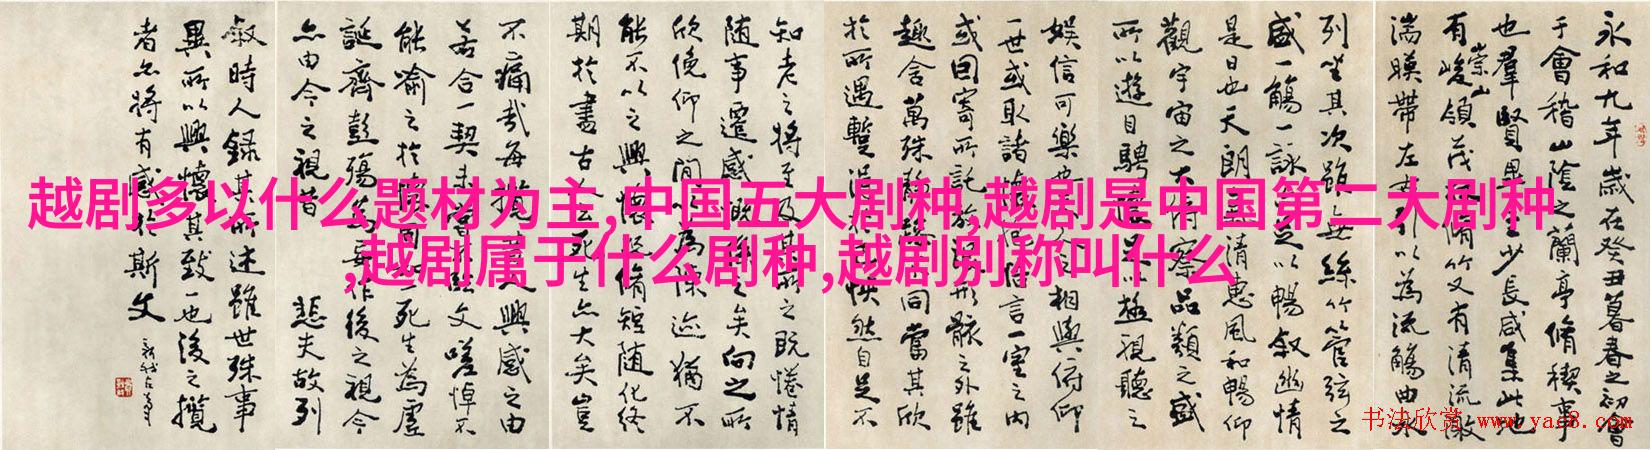 越剧多以什么题材为主,中国五大剧种,越剧是中国第二大剧种
,越剧属于什么剧种,越剧别称叫什么
永和九年歲在癸丑暮春之初會
于會稽山陰之蘭亭脩稧事
也羣賢畢至少長咸集此地
有崇山峻領茂脩竹又有清流激
湍暎帶左右引以為流觴曲水
列坐其次雖無絲竹管弦之
盛一觴一詠足以暢叙幽情
是日也天朗清惠風和暢仰
觀宇宙之大俯察品類之盛
所以遊目騁足以極視聽之
娛信可樂也人之相與俯仰
一世或取諸悟言一室之內
或因寄所託放形骸之外雖
趣舍萬殊靜同當其欣
於所遇蹔得怏然自足不
知老之將至及其所之既惓情
隨事遷感慨係之矣向之所
欣俛仰之間以為陳迹猶不
能不以之興懷脩短隨化終
期於盡古人死生亦大矣豈
不痛哉每攬昔人興感之由
若合一契未嘗臨文嗟悼不
能喻之於懷固知一死生為虛
誕齊彭殤為妄作後之視今
亦由今之視昔 悲夫故列
敘時人錄其所述雖世殊事
異所以興懷其致一也後之攬
者亦將有感於斯文
书法欣赏 www.yac8.com